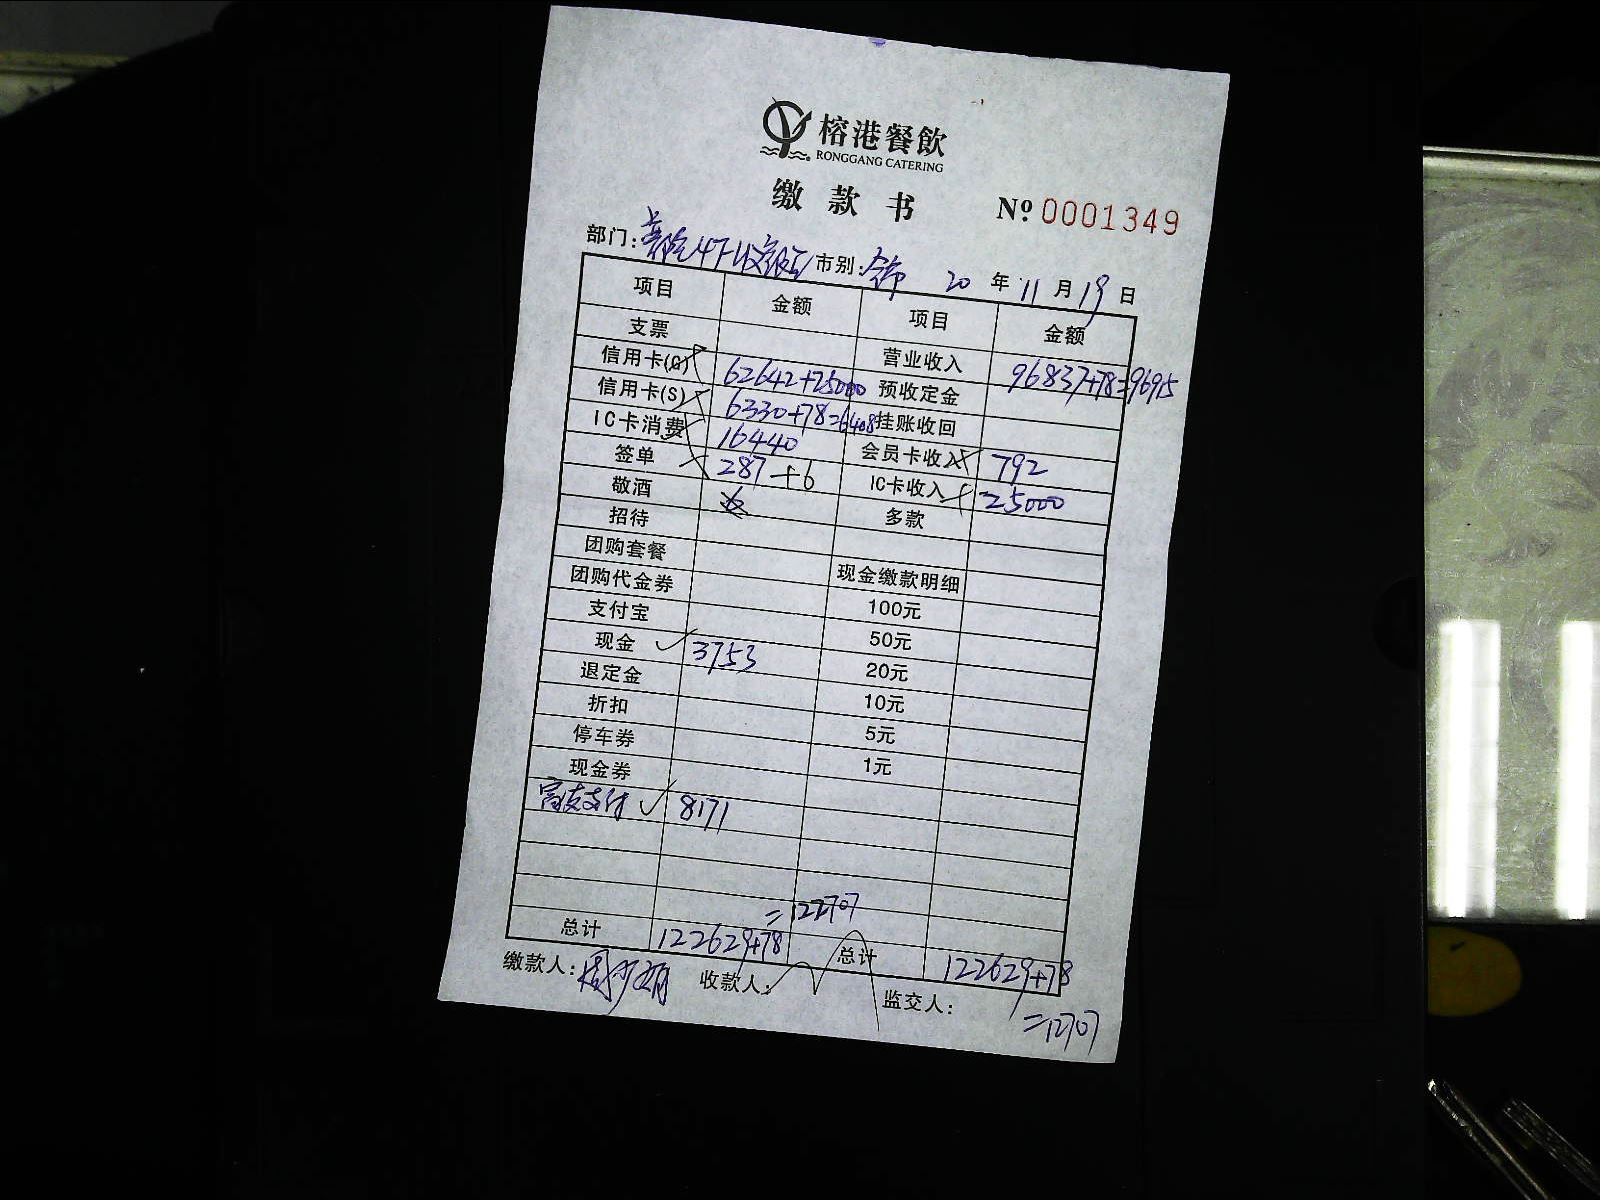 榕港餐飲
RONGGANG CATERING
缴 款 书 Nº 0001349
部门: 4F收银 市别: 全市 20 年 11 月 19 日
项目 金额 项目 金额
支票 营业收入 96837+78=96915
信用卡(G) 62642+25000 预收定金
信用卡(S) 6330+78=6408 挂账收回
IC卡消费 16440 会员卡收入 792
签单 287+6 IC卡收入 25000
敬酒 多款
招待
团购套餐 现金缴款明细
团购代金券 100元
支付宝 50元
现金 3753 20元
退定金 10元
折扣 5元
停车券 1元
现金券
富友支付 8171
=122707
总计 122629+78 总计 122629+78
缴款人: 收款人: 监交人:
=12707